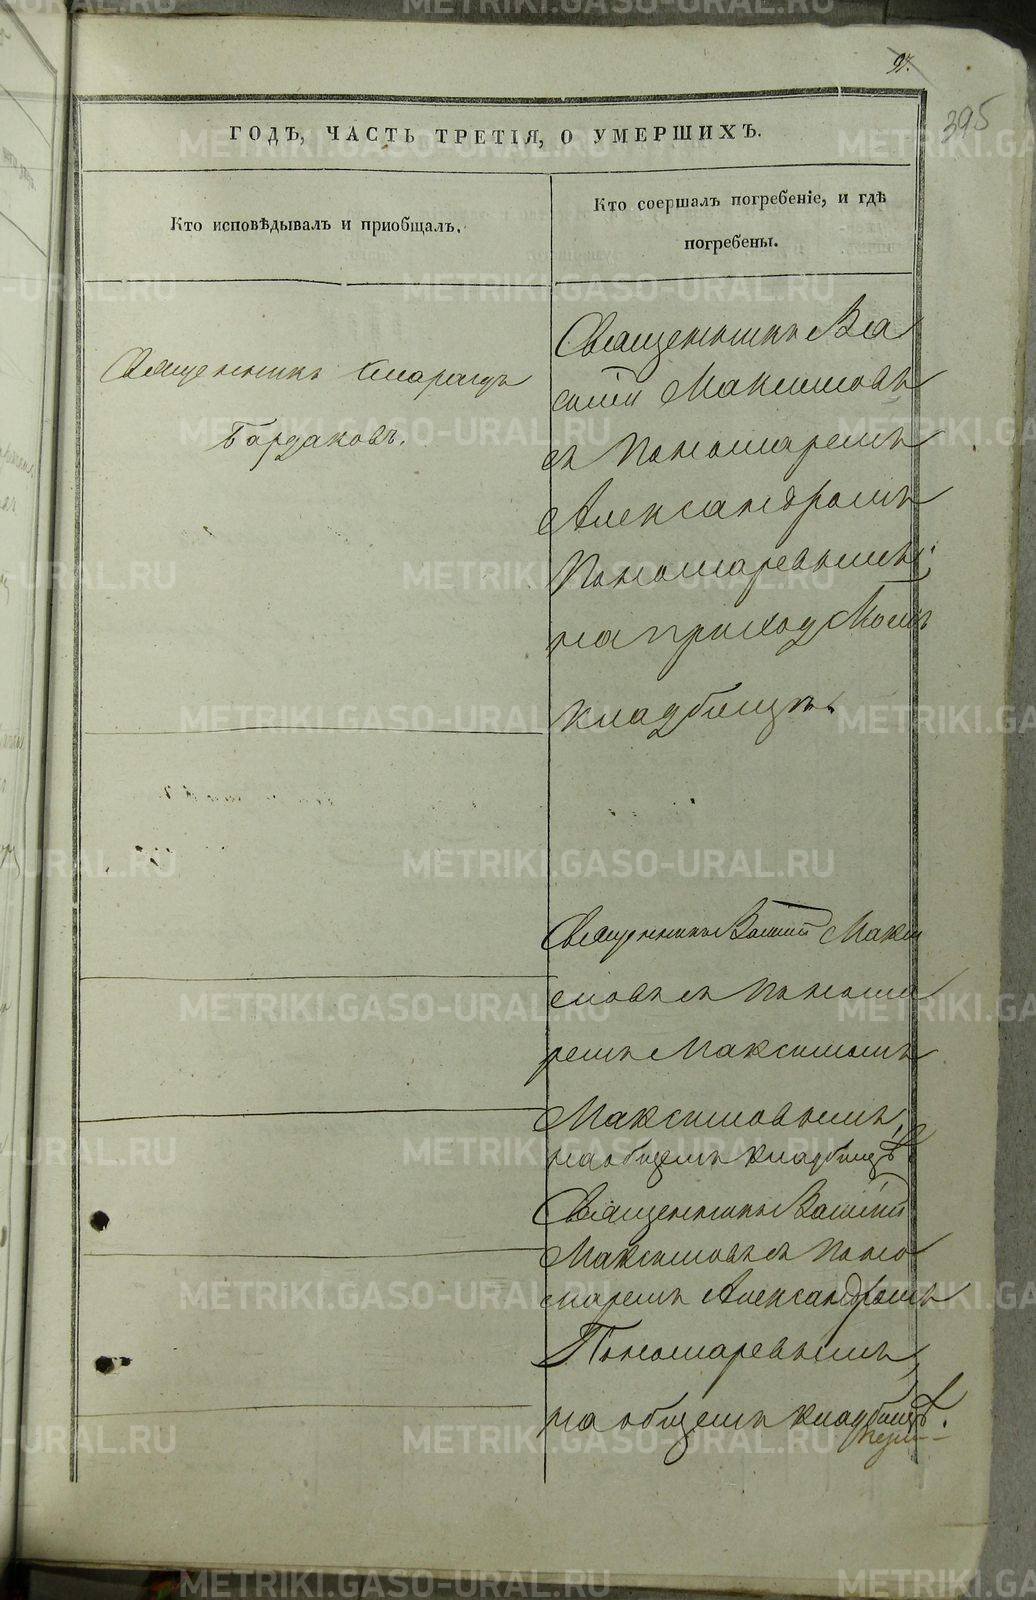 395
ГОДЪ, ЧАСТЬ ТРЕТІЯ, О УМЕРШИХЪ.
Кто исповѣдывалъ и приобщалъ.
Кто соершалъ погребеніе, и гдѣ
погребены.
Священникъ Смарагдъ
Бардаковъ.
Священникъ Ва
силій Максимовъ
съ Пономаремъ
Александромъ
Пономаревымъ;
на приходскомъ
кладбищѣ.
Священникъ Василій Макси
мовъ съ Понома
ремъ Максимомъ
Максимовымъ,
на общемъ кладбищѣ.
Священникъ Василій
Максимовъ съ Поно
маремъ Александромъ
Пономаревымъ,
на общемъ кладбищѣ.
METRIKI.GASO-URAL.RU